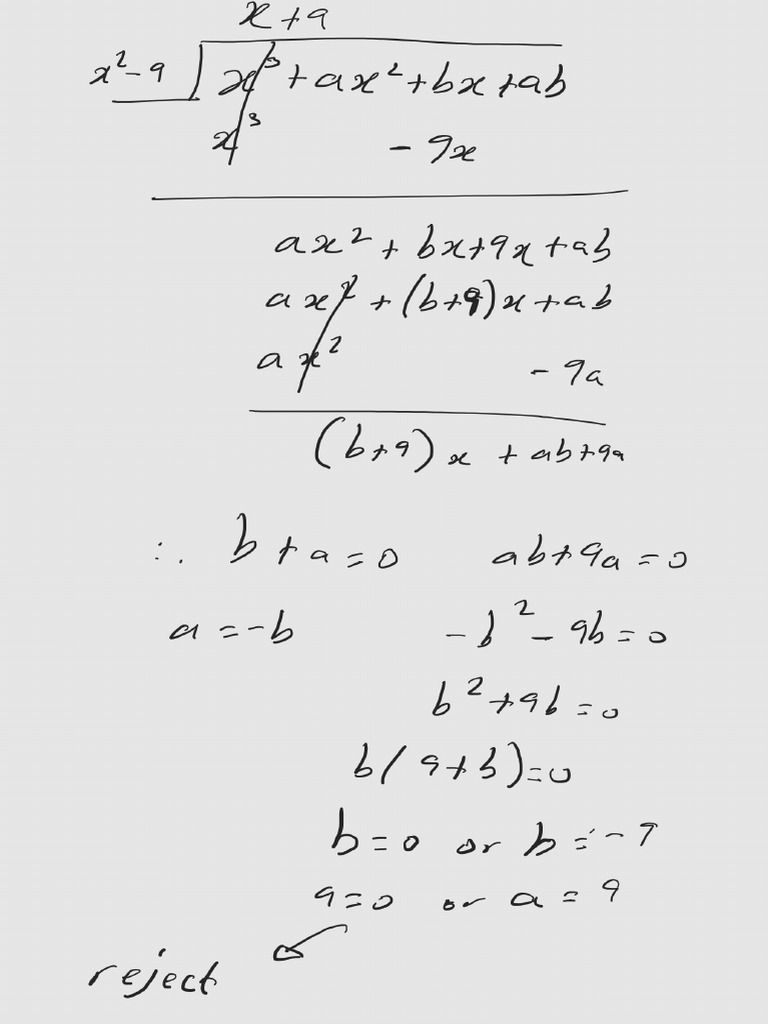 x + 9
x² - 9 ) x³ + ax² + bx + ab
x³ - 9x
ax² + bx + 9x + ab
ax² + (b+9)x + ab
ax² - 9a
(b+9)x + ab + 9a
∴ b + a = 0 ab + 9a = 0
a = -b -b² - 9b = 0
b² + 9b = 0
b(9+b) = 0
b = 0 or b = -9
a = 0 or a = 9
reject